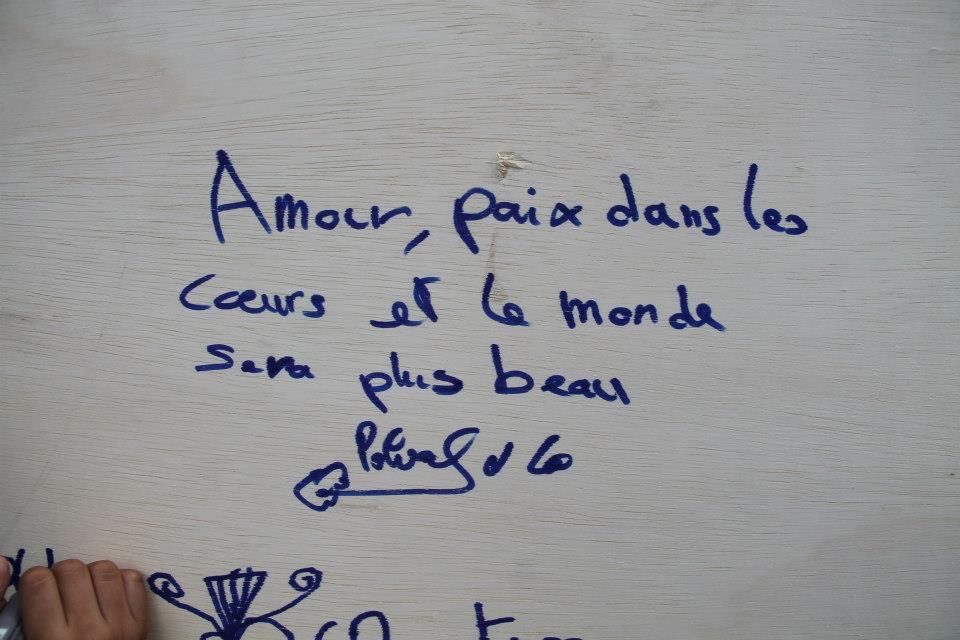 Amour, paix dans les
cœurs et le monde
sera plus beau